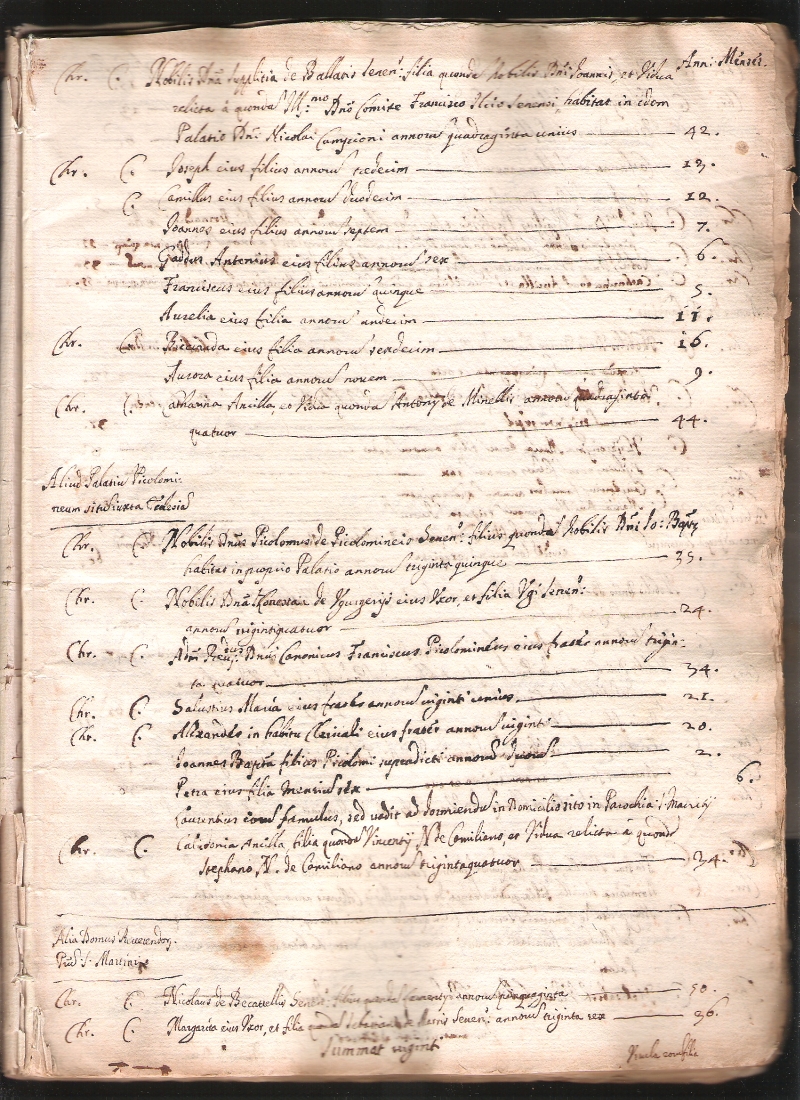 Anni Menses.
Chr. C. Nobilis Dna de Ballatis Senen: filia quonda Nobilis Dni Joannis, et Vidua
relicta à quonda Ill.mo Dno Comite Francisco Senensi habitat in eodm
Palatio Dni Nicolai annoru quadraginta unius 42.
Chr. C. Joseph eius filius annoru tredecim 13.
C. Camillus eius filius annoru duodecim 12.
Joannes eius filius annoru septem 7.
Antonius eius filius annoru sex 6.
Franciscus eius filius annoru quinque 5.
Aurelia eius filia annoru undecim 11.
Chr. C. eius filia annoru sexdecim 16.
Aurora eius filia annoru novem 9.
Chr. C. Catharina Ancilla, et Vidua quonda Antonij de Minellis annoru quadraginta
quatuor 44.
Aliud Palatiu Picolomi-
neum situ iuxta Ecclesia
Chr. C. Nobilis Dnus Picolomus de Picolomineis Senen: filius quonda Nobilis Dni Jo: Bapte
habitat in proprio Palatio annoru triginta quinque 35.
Chr. C. Nobilis Dna Honesta de Ugurgerijs eius Uxor, et filia Senen:
annoru vigintiquatuor 24.
Chr. C. Adm Reu: Dnus Canonicus Franciscus Picolomineus eius frater annoru trigin-
ta quatuor 34.
Chr. C. Salustius Maria eius frater annoru viginti unius 21.
Chr. C. Alexander in habitu Clericali eius frater annoru viginti 20.
Joannes Bapta filius Picolomi supradicti annoru duoru 2.
Petra eius filia mensiu sex 6.
Laurentius eoru famulus, sed vadit ad dormiendu in Domicilio sito in Parochia S. Mauritij
Chr. C. Ancilla, filia quonda Vincentij N. de Comiliano, et Vidua relicta à quonda
Stephano N. de Comiliano annoru trigintaquatuor 34.
Alia Domus Reverendor.
S. Martini
Chr. C. Nicolaus de Becattellis Senen: filius quonda annoru quinquaginta 50.
Chr. C. Margarita eius Uxor, et filia quonda de Senen: annoru triginta sex 36.